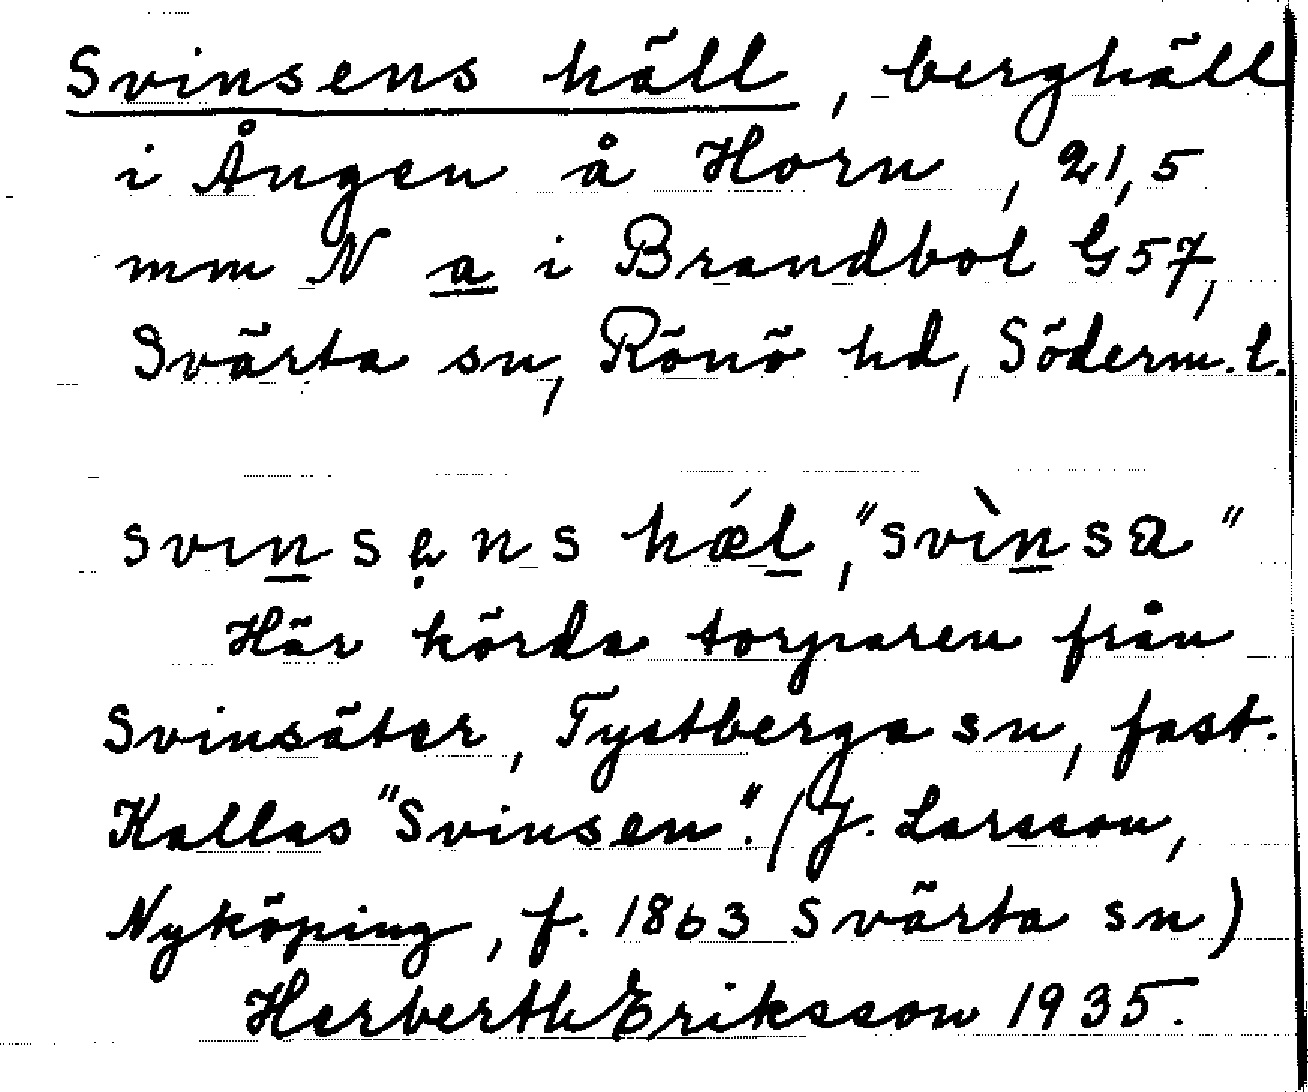 Svinsens häll, berghäll
i Ången å Horn, 21,5
mm N a i Brandbol G57,
Svärta sn, Rönö hd, Söderm.l.
svınsə̣ns hǽl, "svìnsa"
Här körda torparen från
Svinsäter, Tystberga sn, fast.
Kallas "Svinsen". (J. Larsson,
Nyköping, f. 1863 Svärta sn)
Herberth Eriksson 1935.